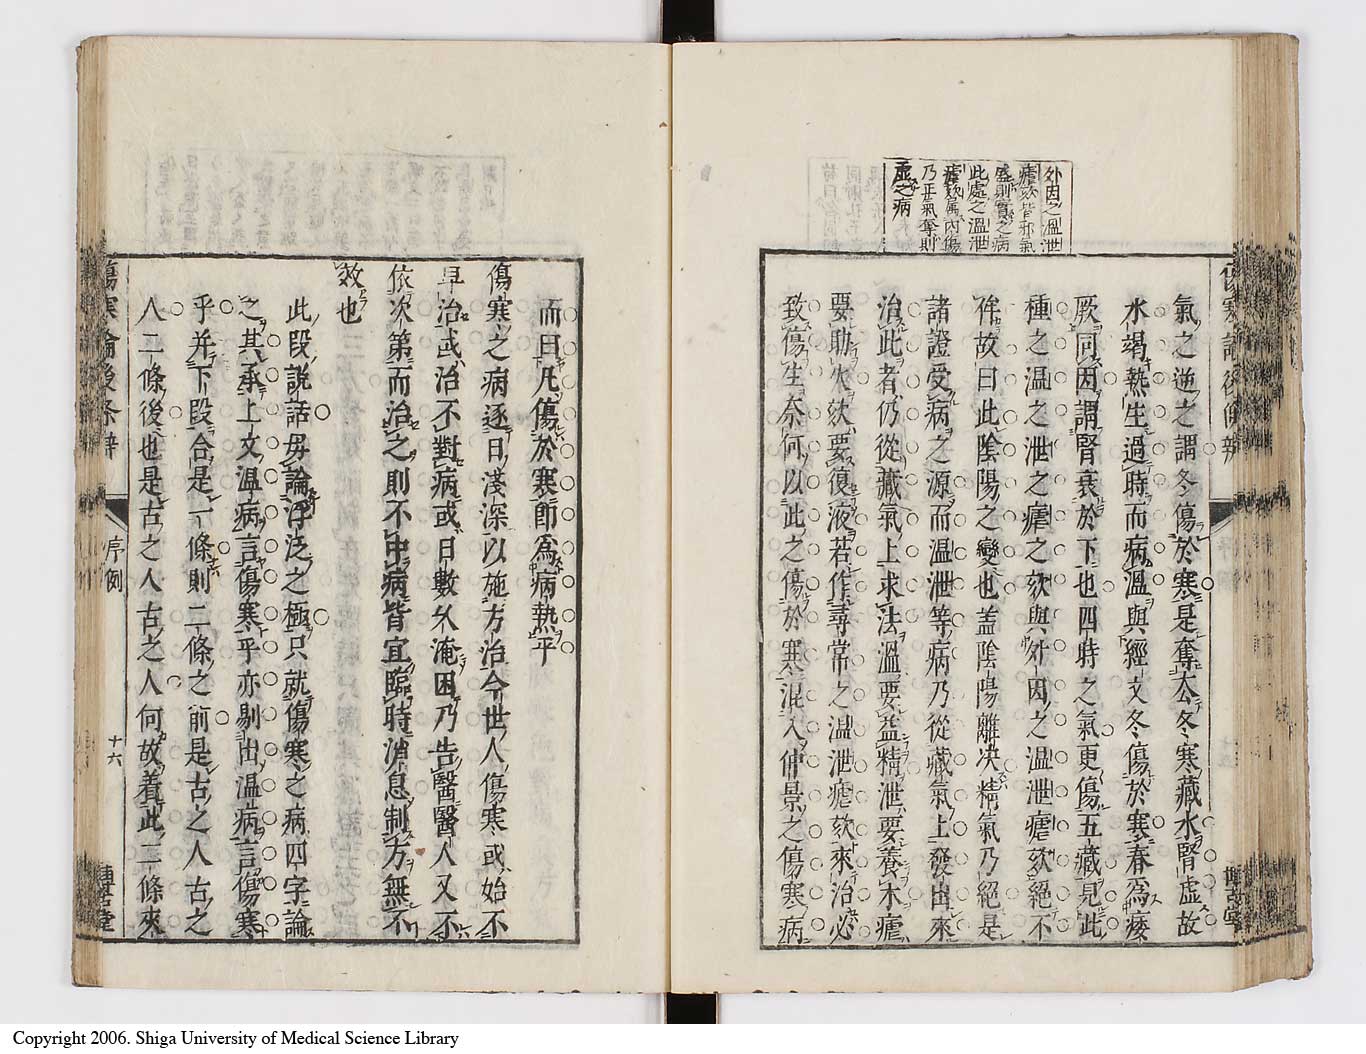 外因之溫泄
瘧欬皆邪氣
盛則實之病
此處之溫泄
瘧欬屬內傷
乃正氣奪則
虛之病
氣之逆之謂冬傷於寒是奪太公冬寒藏水腎虛故
水竭熱生過時而病溫與經文冬傷於寒春為痿
厥同因謂腎衰於下也四時之氣更傷五藏見此
種之溫之泄之瘧之欬與外因之溫泄瘧欬絕不
侔故曰此陰陽之變也蓋陰陽離决精氣乃絕是
諸證受病之源而溫泄等病乃從藏氣上發出來
治此者仍從藏氣上求法溫要益精泄要養木瘧
要助火欬要復液若作尋常之溫泄瘧欬來治必
致傷生奈何以此之傷於寒混入仲景之傷寒病
而曰凡傷於寒卽為病熱乎
傷寒之病逐日淺深以施方治今世人傷寒或始不
早治或治不對病或日數久淹困乃告醫醫人又不
依次第而治之則不中病皆宜臨時消息制方無不
效也
此段說話毋論浮泛之極只就傷寒之病四字論
之其承上文溫病言傷寒乎亦剔出溫病言傷寒
乎并下段合是一條則二條之前是古之人古之
人二條後也是古之人古之人何故着此二條來
傷寒論後条辨
序例
十六